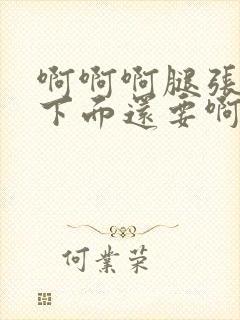 啊啊啊腿张
下而還要啊
何業荣